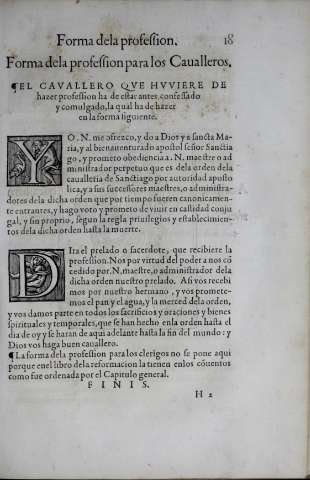 Forma dela profession. 18
Forma dela profession para los Caualleros.
¶EL CAVALLERO QVE HVVIERE DE
hazer profession ha de estar antes confessado
y comulgado, la qual ha de hazer
en la forma siguiente.
YO. N. me ofrezco, y do a Dios y a sancta Ma-
ria, y al bienauenturado apostol señor Sanctia
go, y prometo obediencia a. N. maestre o ad
ministrador perpetuo que es dela orden dela
cauallería de Sanctiago por autoridad aposto
lica, y a sus successores maestres, o administra-
dores dela dicha orden que por tiempo fueren canonicamen-
te entrantes, y hago voto y prometo de viuir en castidad conju
gal, y sin proprio, segun la regla priuilegios y establecimien-
tos dela dicha orden hasta la muerte.
DIra el prelado o sacerdote, que recibiere la
profession. Nos por virtud del poder a nos cõ
cedido por. N. maestre, o administrador dela
dicha orden nuestro prelado. Assi vos recebi
mos por nuestro hermano, y vos promete-
mos el pan y el agua, y la merced dela orden,
y vos damos parte en todos los sacrificios y oraciones y bienes
spirituales y temporales, que se han hecho enla orden hasta el
dia de oy y se haran de aqui adelante hasta la fin del mundo: y
Dios vos haga buen cauallero.
¶La forma dela profession para los clerigos no se pone aqui
porque en el libro dela reformacion la tienen enlos cõuentos
como fue ordenada por el Capitulo general.
FINIS.
H 2